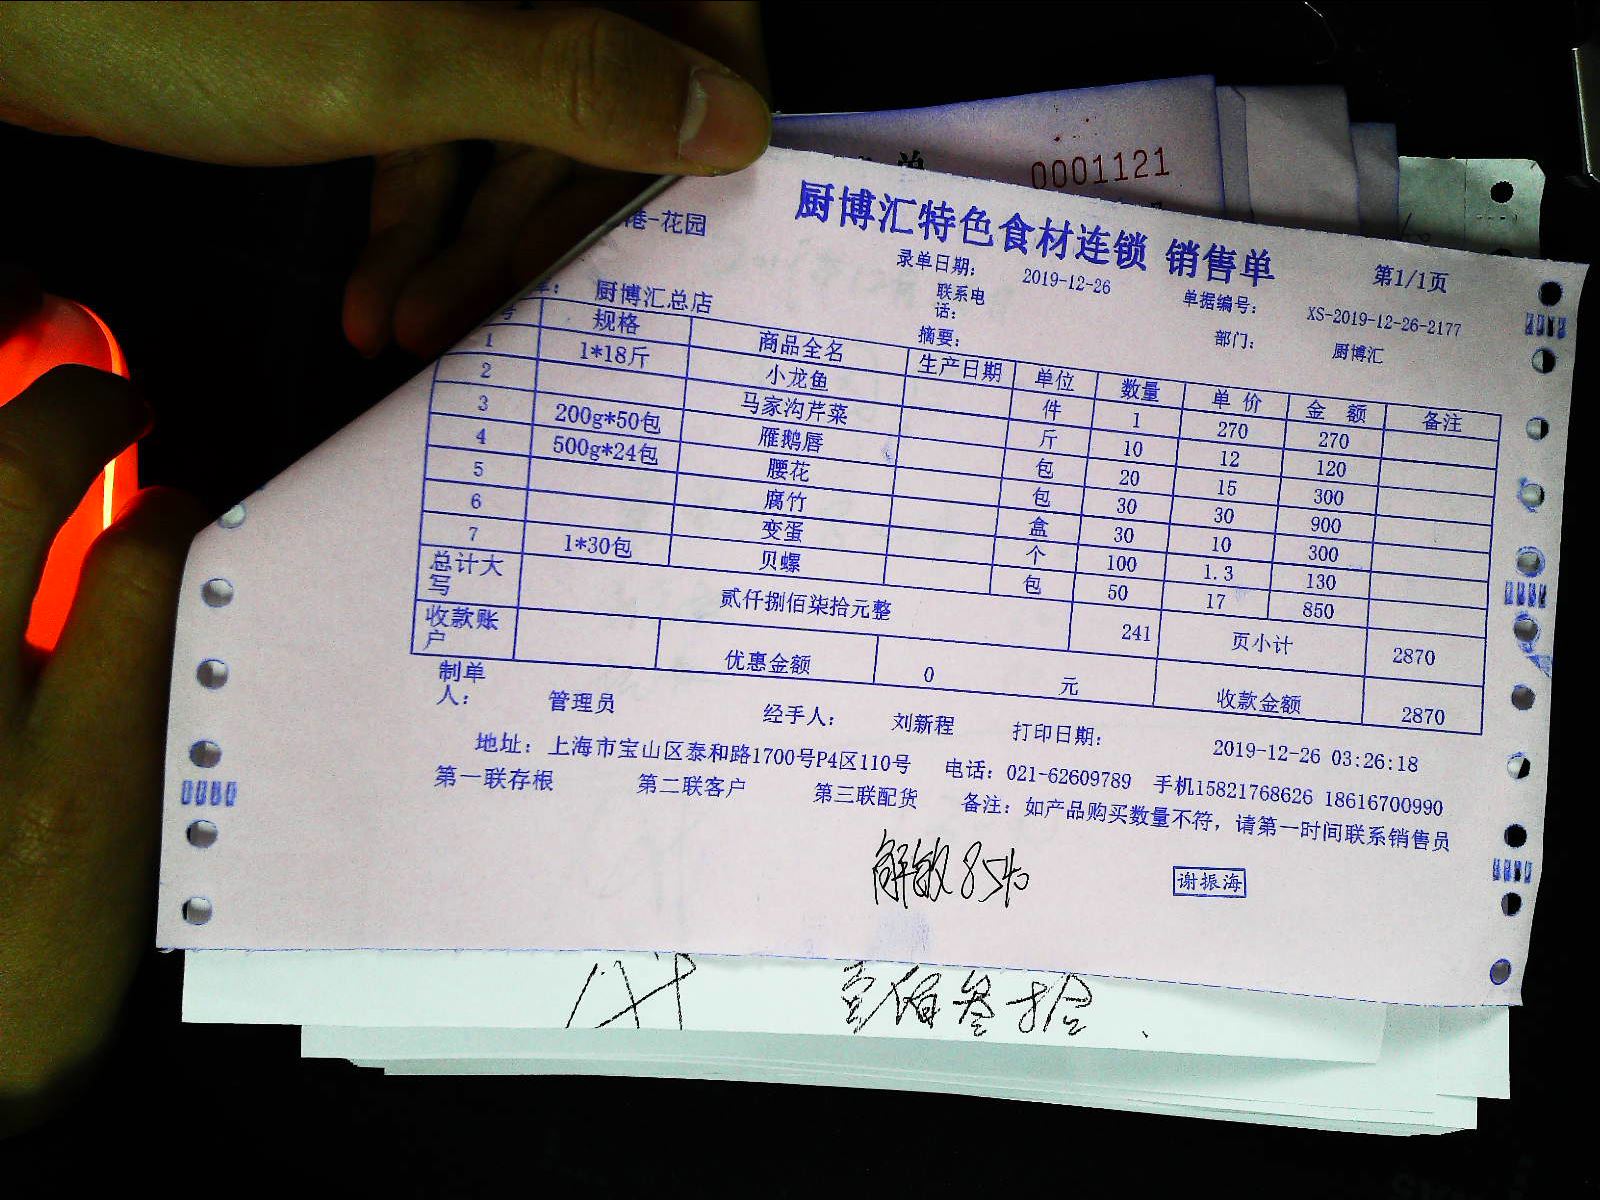 0001121
港-花园
厨博汇特色食材连锁 销售单
第1/1页
录单日期: 2019-12-26 单据编号: XS-2019-12-26-2177
厨博汇总店 联系电话: 摘要: 部门: 厨博汇
规格 商品全名 生产日期 单位 数量 单价 金额 备注
1 1*18斤 小龙鱼 件 1 270 270
2 马家沟芹菜 斤 10 12 120
3 200g*50包 雁鹅唇 包 20 15 300
4 500g*24包 腰花 包 30 30 900
5 腐竹 盒 30 10 300
6 变蛋 个 100 1.3 130
7 1*30包 贝螺 包 50 17 850
总计大写 贰仟捌佰柒拾元整 241 页小计 2870
收款账户 优惠金额 0 元 收款金额 2870
制单人: 管理员 经手人: 刘新程 打印日期: 2019-12-26 03:26:18
地址: 上海市宝山区泰和路1700号P4区110号 电话: 021-62609789 手机15821768626 18616700990
第一联存根 第二联客户 第三联配货 备注: 如产品购买数量不符, 请第一时间联系销售员
谢振海
壹佰叁拾